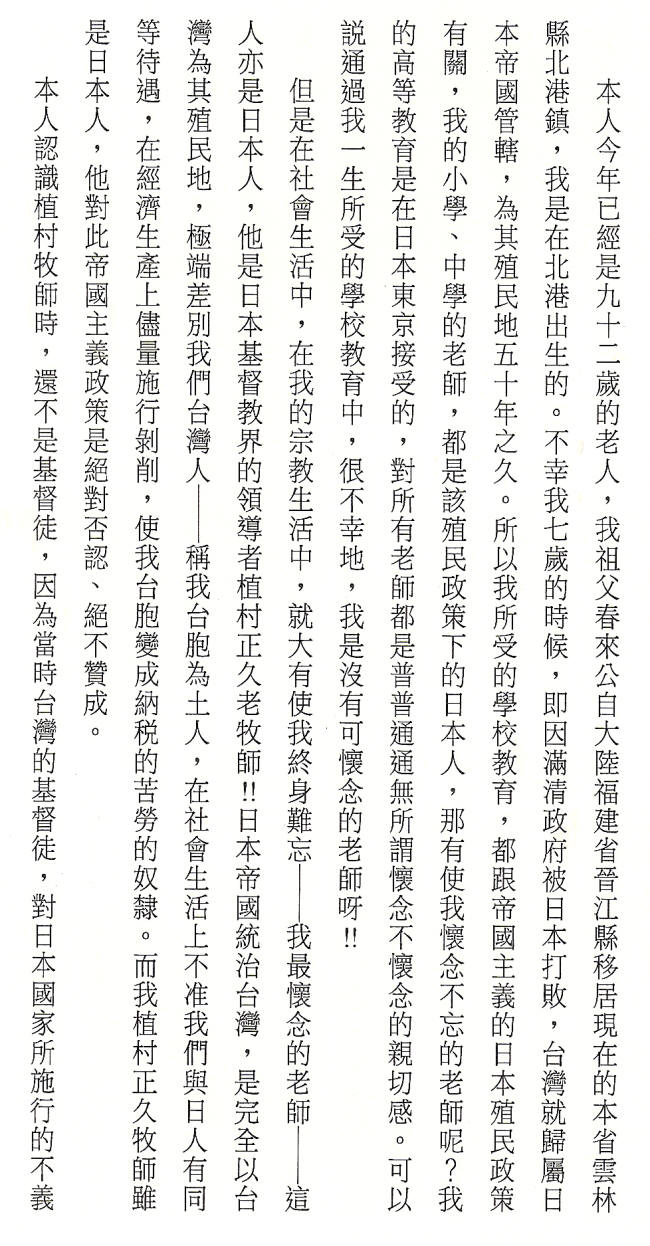 本人今年已經是九十二歲的老人，我祖父春來公自大陸福建省晉江縣移居現在的本省雲林
縣北港鎮，我是在北港出生的。不幸我七歲的時候，即因滿清政府被日本打敗，台灣就歸屬日
本帝國管轄，為其殖民地五十年之久。所以我所受的學校教育，都跟帝國主義的日本殖民政策
有關，我的小學、中學的老師，都是該殖民政策下的日本人，那有使我懷念不忘的老師呢？我
的高等教育是在日本東京接受的，對所有老師都是普普通通無所謂懷念不懷念的親切感。可以
說通過我一生所受的學校教育中，很不幸地，我是沒有可懷念的老師呀!!
但是在社會生活中，在我的宗教生活中，就大有使我終身難忘——我最懷念的老師——這
人亦是日本人，他是日本基督教界的領導者植村正久老牧師!!日本帝國統治台灣，是完全以台
灣為其殖民地，極端差別我們台灣人——稱我台胞為土人，在社會生活上不准我們與日人有同
等待遇，在經濟生產上儘量施行剝削，使我台胞變成納稅的苦勞的奴隸。而我植村正久牧師雖
是日本人，他對此帝國主義政策是絕對否認、絕不贊成。
本人認識植村牧師時，還不是基督徒，因為當時台灣的基督徒，對日本國家所施行的不義